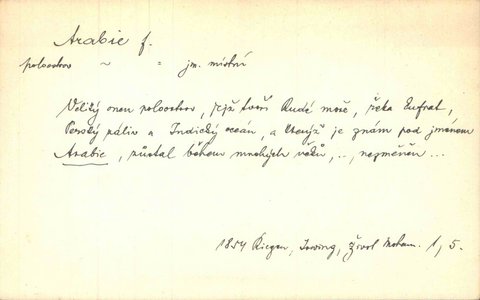 Arabie f.
poloostrov ~ = jm. místní
Veliký onen poloostrov, jejž tvoří Rudé moře, řeka Eufrat,
Perský záliv a Indický oceán, a kterýž je znám pod jménem
Arabie, zůstal během mnohých věků, .., nezměněn ...
1854 Riegen, Irving, Život Moham. 1, 5.